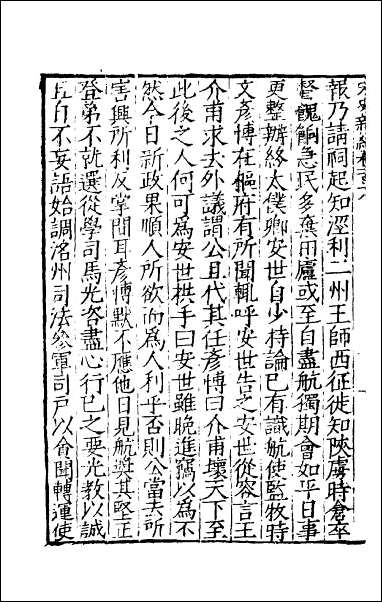 宋史新編卷一百八
報乃請祠起知涇利二州王師西征徙知陜虜時倉卒
督餽餉急民多棄田廬或至自盡航獨期會如平日事
更整辦終太僕卿安世自少持論已有識航使監牧時
文彥博在樞府有所聞輒呼安世告之安世從容言王
介甫求去外議謂公且代其任彥博曰介甫壞天下至
此後之人何可為安世拱手曰安世雖晚進竊以為不
然今日新政果順人所欲而為人利乎否則公當去所
害興所利反掌間耳彥博默不應他日見航奨其堅正
登第不就選從學司馬光咨盡心行巳之要光教以誠
且自不妄語始調洺州司法參軍司戶以會聞轉運使